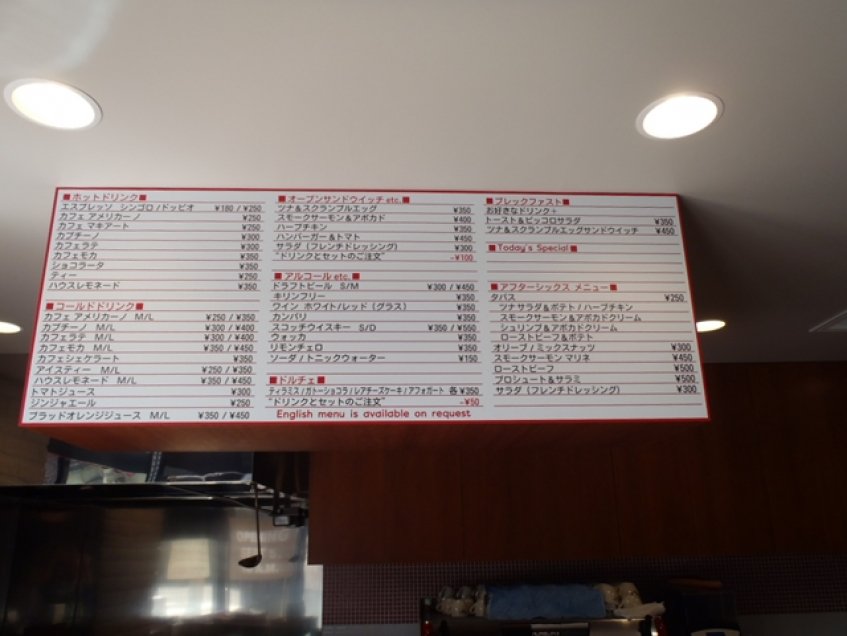 ■ホットドリンク■
エスプレッソ シンゴロ/ドッピオ ¥180 / ¥250
カフェ アメリカーノ ¥250
カフェ マキアート ¥250
カプチーノ ¥300
カフェラテ ¥300
カフェモカ ¥350
ショコラータ ¥350
ティー ¥250
ハウスレモネード ¥350
■コールドドリンク■
カフェ アメリカーノ M/L ¥250 / ¥350
カプチーノ M/L ¥300 / ¥400
カフェラテ M/L ¥300 / ¥400
カフェモカ M/L ¥350 / ¥450
カフェシェケラート ¥350
アイスティー M/L ¥250 / ¥350
ハウスレモネード M/L ¥350 / ¥450
トマトジュース ¥300
ジンジャエール ¥250
ブラッドオレンジジュース M/L ¥350 / ¥450
■オープンサンドウイッチ etc.■
ツナ&スクランブルエッグ ¥350
スモークサーモン&アボカド ¥400
ハーブチキン ¥350
ハンバーガー&トマト ¥450
サラダ (フレンチドレッシング) ¥300
"ドリンクとセットのご注文" -¥100
■アルコール etc.■
ドラフトビール S/M ¥300 / ¥450
キリンフリー ¥350
ワイン ホワイト/レッド (グラス) ¥350
カンパリ ¥350
スコッチウイスキー S/D ¥350 / ¥550
ウォッカ ¥350
リモンチェロ ¥350
ソーダ / トニックウォーター ¥150
■ドルチェ■
ティラミス/ガトーショコラ/レアチーズケーキ/アフォガート 各¥350
"ドリンクとセットのご注文" -¥50
English menu is available on request
■ブレックファスト■
お好きなドリンク+
トースト&ピッコロサラダ ¥350
ツナ&スクランブルエッグサンドウイッチ ¥450
■Today's Special■
■アフターシックス メニュー■
タパス ¥250
ツナサラダ&ポテト / ハーブチキン
スモークサーモン&アボカドクリーム
シュリンプ&アボカドクリーム
ローストビーフ&ポテト
オリーブ / ミックスナッツ ¥300
スモークサーモン マリネ ¥450
ローストビーフ ¥500
プロシュート&サラミ ¥500
サラダ (フレンチドレッシング) ¥300